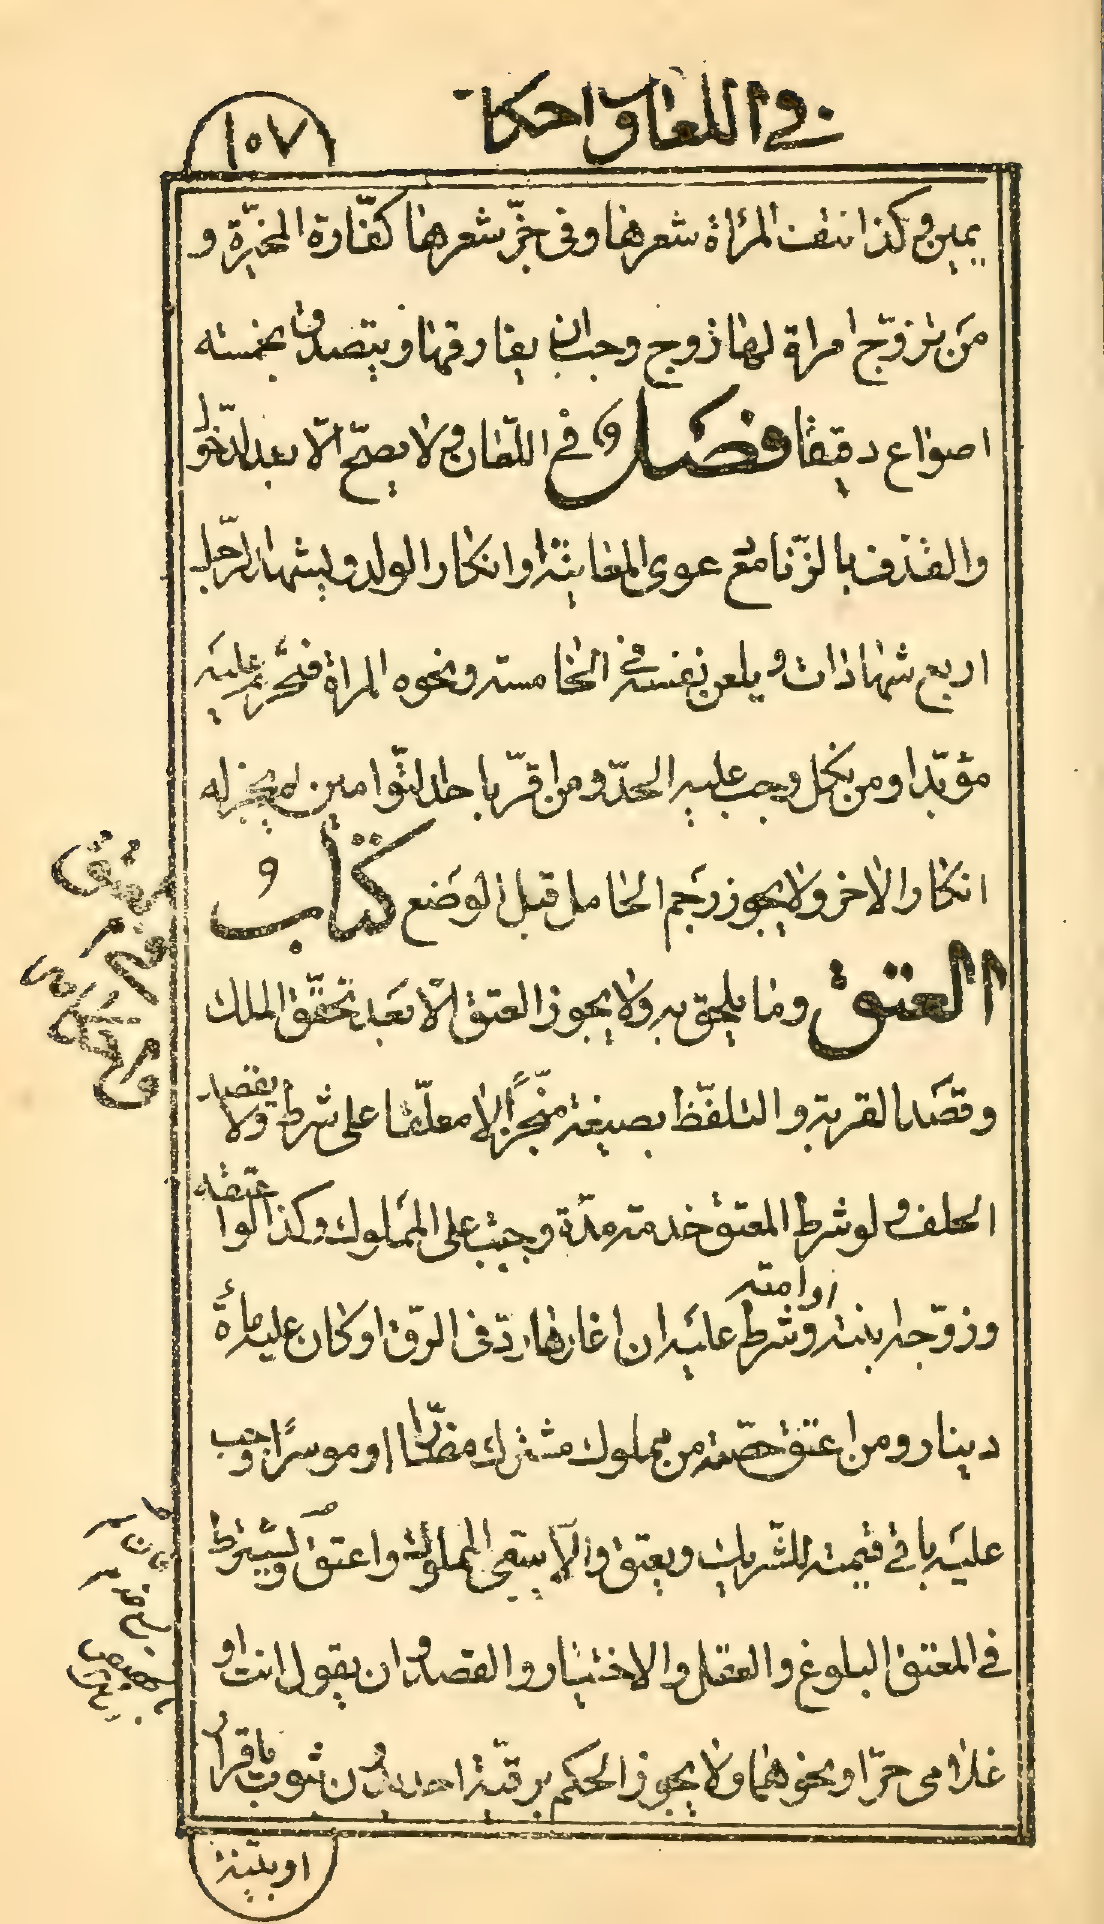 في اللعان واحكا
١٠٧
يمين وكذا نتفت المرأة شعرها وفى جزّ شعرها كفّارة المخيّرة و
من تزوّج امراة لها زوج وجب ان يفارقها ويتصدق بخمسة
اصواع دقيقا فصل في اللعان ولا يصحّ الّا بعد الدّخول
والقذف بالزّنا مع دعوى المعاينة او انكار الولد ويشهد الرّجل
اربع شهادات ويلعن نفسه في الخامسة ونحوه المراة فتحرم عليه
مؤبّدا ومن نكل وجب عليه الحدّ ومن اقرّ باحد التّوامين لم يجز له
انكار الاخر ولا يجوز رجم الحامل قبل الوضع كتاب
العتق وما يلحق به ولا يجوز العتق الّا بعد تحقّق الملك
وقصد القربة والتلفّظ بصيغة منجّزًا لا معلّقا على شرط ولا بقصد
الحلف ولو شرط المعتق خدمته مدّة وجبت على المملوك وكذا لو اعتقه
وزوّجه ابنته او امته وشرط عليه ان اغارها ردّ فى الرقّ او كان عليه مائة
دينار ومن اعتق حصّته من مملوك مشترك مضارّا او موسرًا وجب
عليه باقي قيمته للشريك ويعتق والّا يستسعى المملوك واعتق ويشترط
في المعتق البلوغ والعقل والاختيار والقصد وان يقول انت او
غلامى حرّ او نحوهما ولا يجوز الحكم برقّية احد بدون ثبوت باقرار
او بيّنة
في العتق
واحكامه